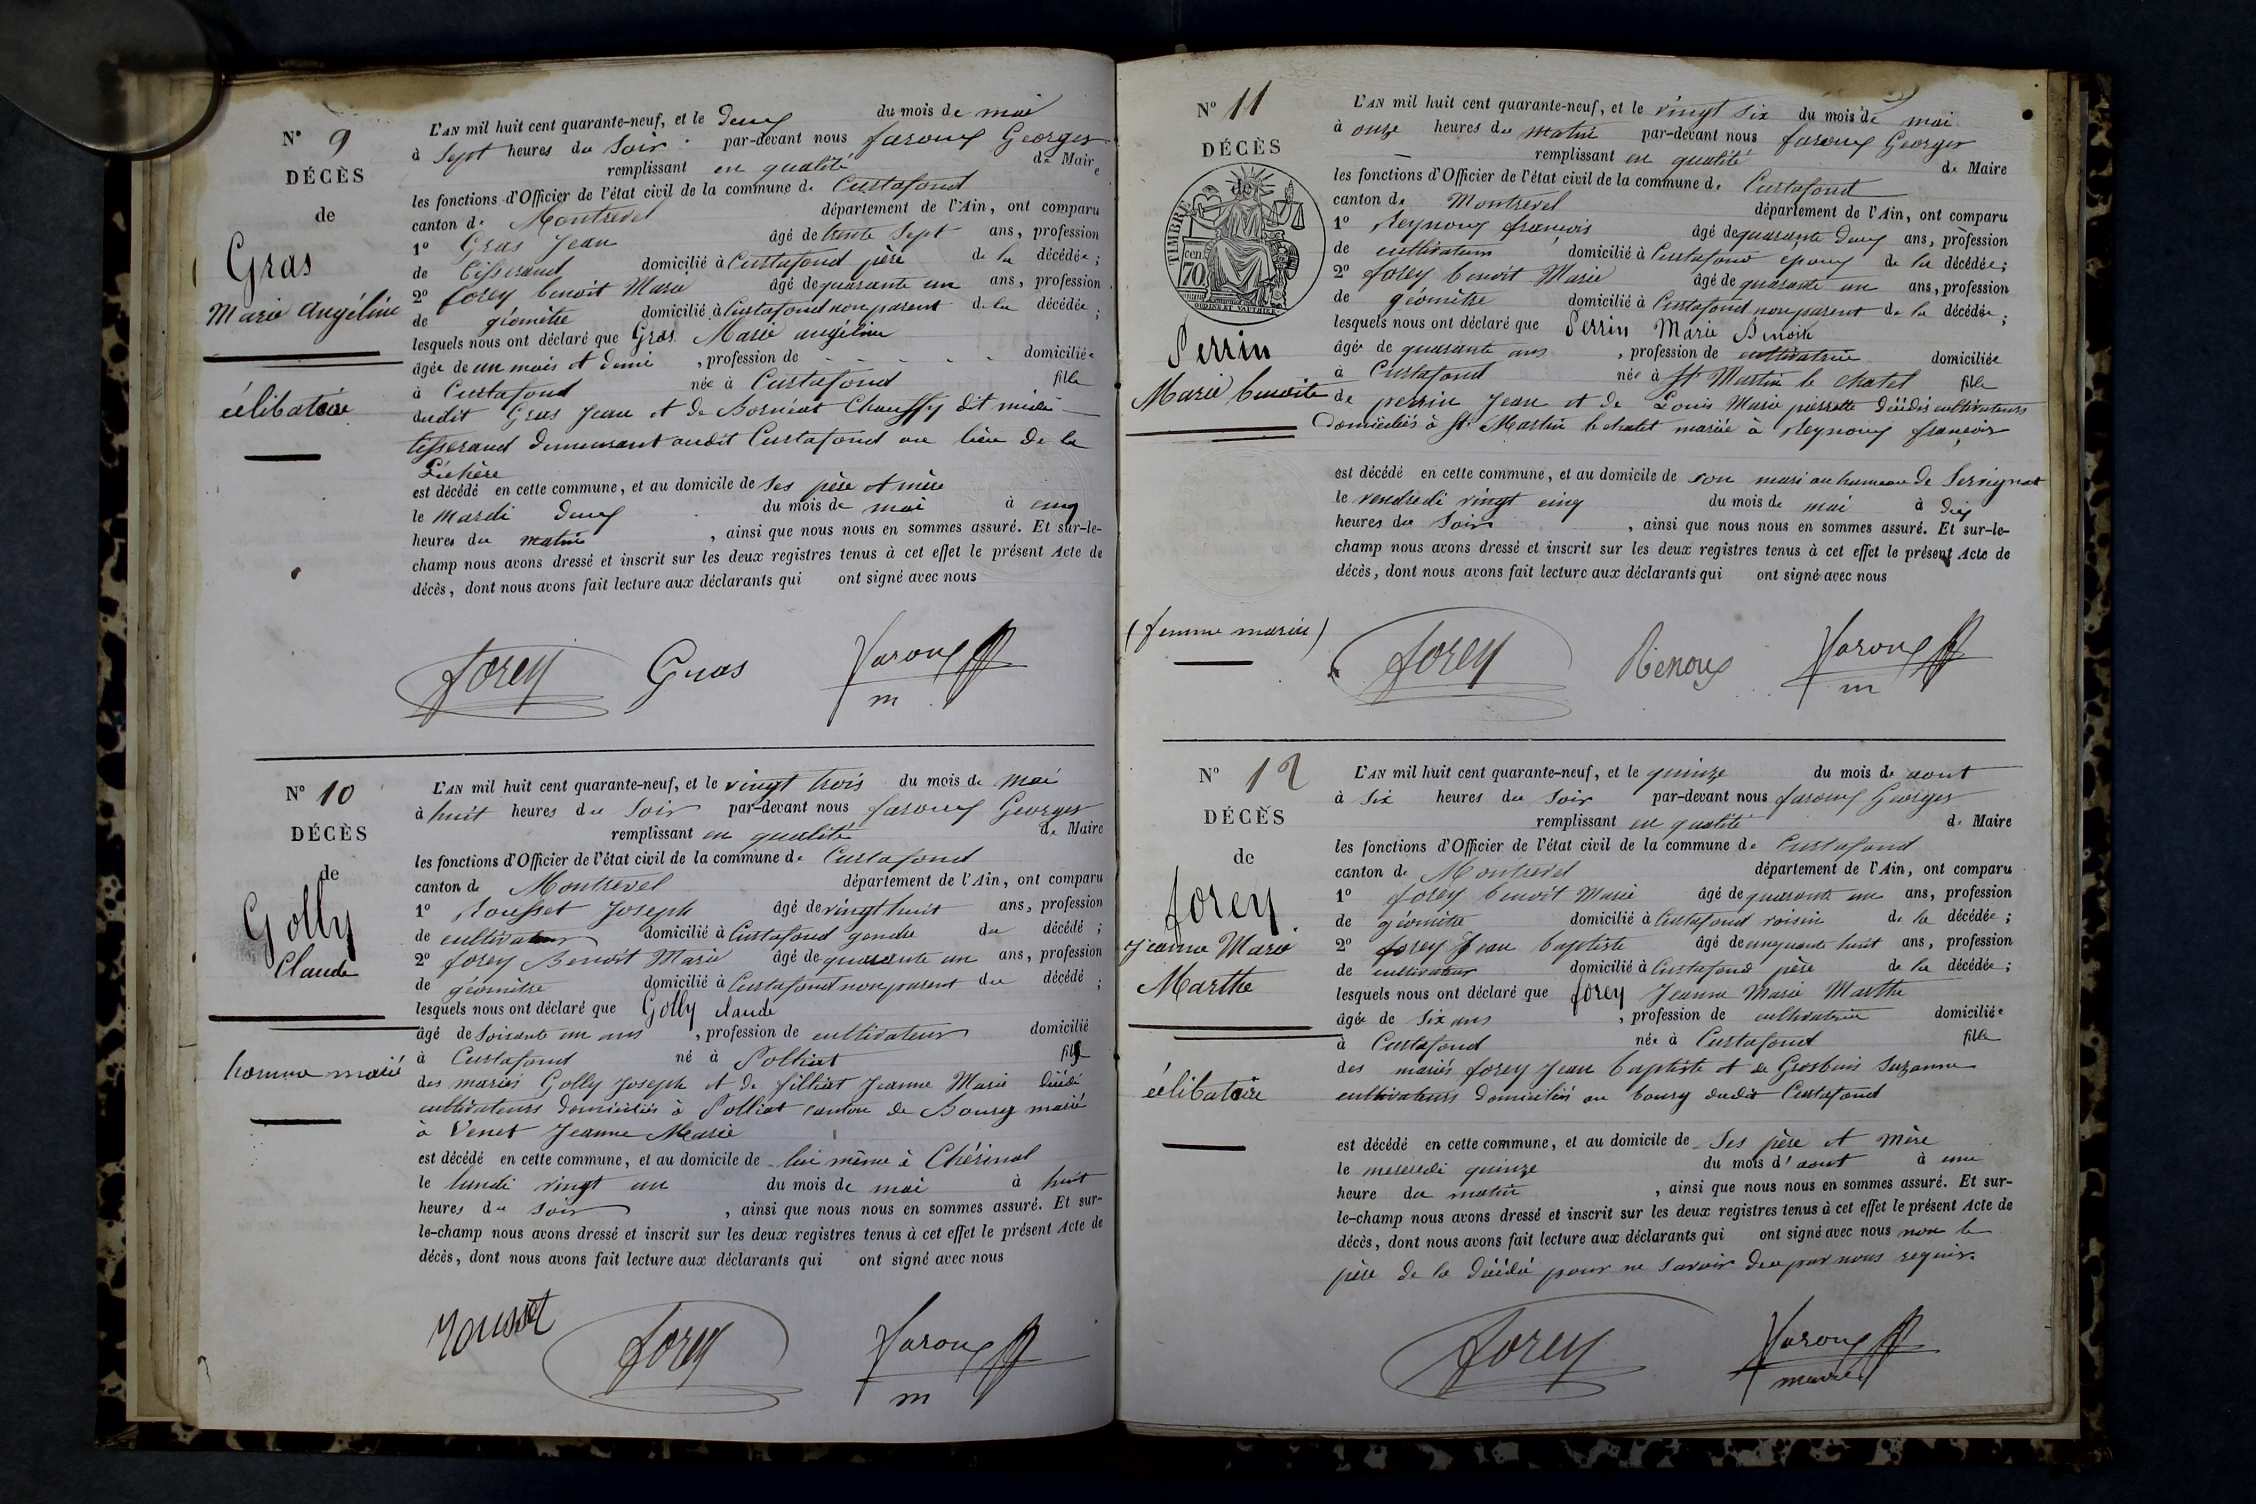 N° 9
DÉCÈS
de
Gras
Marie Angéline
célibataire
L'AN mil huit cent quarante-neuf, et le deux du mois de mai
à sept heures du soir par-devant nous faroux Georges
remplissant en qualité de Maire
les fonctions d'Officier de l'état civil de la commune de Curtafond
canton de Montrevel département de l'Ain, ont comparu
1° Gras Jean âgé de trente sept ans, profession
de tisserand domicilié à Curtafond père de la décédée;
2° forey benoit Marie âgé de quarante un ans, profession
de géomètre domicilié à Curtafond non parent de la décédée;
lesquels nous ont déclaré que Gras Marie angéline
âgée de un mois et demi, profession de - - - - - domiciliée
à Curtafond née à Curtafond fille
dudit Gras Jean et de Chauffy dit
tisserand demeurant audit Curtafond au lieu de la
est décédé en cette commune, et au domicile de ses père et mère
le mardi deux du mois de mai à cinq
heures du matin, ainsi que nous nous en sommes assuré. Et sur-le-
champ nous avons dressé et inscrit sur les deux registres tenus à cet effet le présent Acte de
décès, dont nous avons fait lecture aux déclarants qui ont signé avec nous
forey Gras faroux
m
N° 10
DÉCÈS
de
Golly
Claude
homme marié
L'AN mil huit cent quarante-neuf, et le vingt trois du mois de mai
à huit heures du soir par-devant nous faroux Georges
remplissant en qualité de Maire
les fonctions d'Officier de l'état civil de la commune de Curtafond
canton de Montrevel département de l'Ain, ont comparu
1° Rousset Joseph âgé de vingt huit ans, profession
de cultivateur domicilié à Curtafond gendre du décédé;
2° forey Benoit Marie âgé de quarante un ans, profession
de géomètre domicilié à Curtafond non parent du décédé;
lesquels nous ont déclaré que Golly claude
âgé de soixante un ans, profession de cultivateur domicilié
à Curtafond né à Polliat fils
des mariés Golly Joseph et de filliat Jeanne Marie décédé
cultivateurs domiciliés à Polliat canton de Bourg marié
à Venet Jeanne Marie
est décédé en cette commune, et au domicile de lui même à Chérinal
le lundi vingt un du mois de mai à huit
heures du soir, ainsi que nous nous en sommes assuré. Et sur-
le-champ nous avons dressé et inscrit sur les deux registres tenus à cet effet le présent Acte de
décès, dont nous avons fait lecture aux déclarants qui ont signé avec nous
rousset forey faroux
m
N° 11
DÉCÈS
de
TIMBRE
70 cen
Perrin
Marie benoite
(femme mariée)
L'AN mil huit cent quarante-neuf, et le vingt six du mois de mai
à onze heures du matin par-devant nous faroux Georges
remplissant en qualité de Maire
les fonctions d'Officier de l'état civil de la commune de Curtafond
canton de Montrevel département de l'Ain, ont comparu
1° Reynoux françois âgé de quarante deux ans, profession
de cultivateur domicilié à Curtafond epoux de la décédée;
2° forey benoit Marie âgé de quarante un ans, profession
de géomètre domicilié à Curtafond non parent de la décédée;
lesquels nous ont déclaré que Perrin Marie Benoite
âgée de quarante ans, profession de cultivatrice domiciliée
à Curtafond née à St Martin le chatel fille
de perrin Jean et de Louis Marie pierrette décédés cultivateurs
domiciliés à St Martin le chatel mariée à Reynoux françois
est décédé en cette commune, et au domicile de son mari au hameau de Servignat
le vendredi vingt cinq du mois de mai à dix
heures du soir, ainsi que nous nous en sommes assuré. Et sur-le-
champ nous avons dressé et inscrit sur les deux registres tenus à cet effet le présent Acte de
décès, dont nous avons fait lecture aux déclarants qui ont signé avec nous
forey Renoux faroux
m
N° 12
DÉCÈS
de
forey
Jeanne Marie
Marthe
célibataire
L'AN mil huit cent quarante-neuf, et le quinze du mois de aout
à six heures du soir par-devant nous faroux Georges
remplissant en qualité de Maire
les fonctions d'Officier de l'état civil de la commune de Curtafond
canton de Montrevel département de l'Ain, ont comparu
1° forey benoit Marie âgé de quarante un ans, profession
de géomètre domicilié à Curtafond voisin de la décédée;
2° forey Jean baptiste âgé de cinquante huit ans, profession
de cultivateur domicilié à Curtafond père de la décédée;
lesquels nous ont déclaré que forey Jeanne Marie Marthe
âgée de six ans, profession de cultivatrice domiciliée
à Curtafond née à Curtafond fille
des mariés forey Jean baptiste et de Grosbuis Suzanne
cultivateurs domiciliés au bourg dudit Curtafond
est décédé en cette commune, et au domicile de ses père et mère
le mercredi quinze du mois d'aout à une
heure du matin, ainsi que nous nous en sommes assuré. Et sur-
le-champ nous avons dressé et inscrit sur les deux registres tenus à cet effet le présent Acte de
décès, dont nous avons fait lecture aux déclarants qui ont signé avec nous non le
père de la décédée pour ne savoir de ce par nous requis.
forey faroux
maire